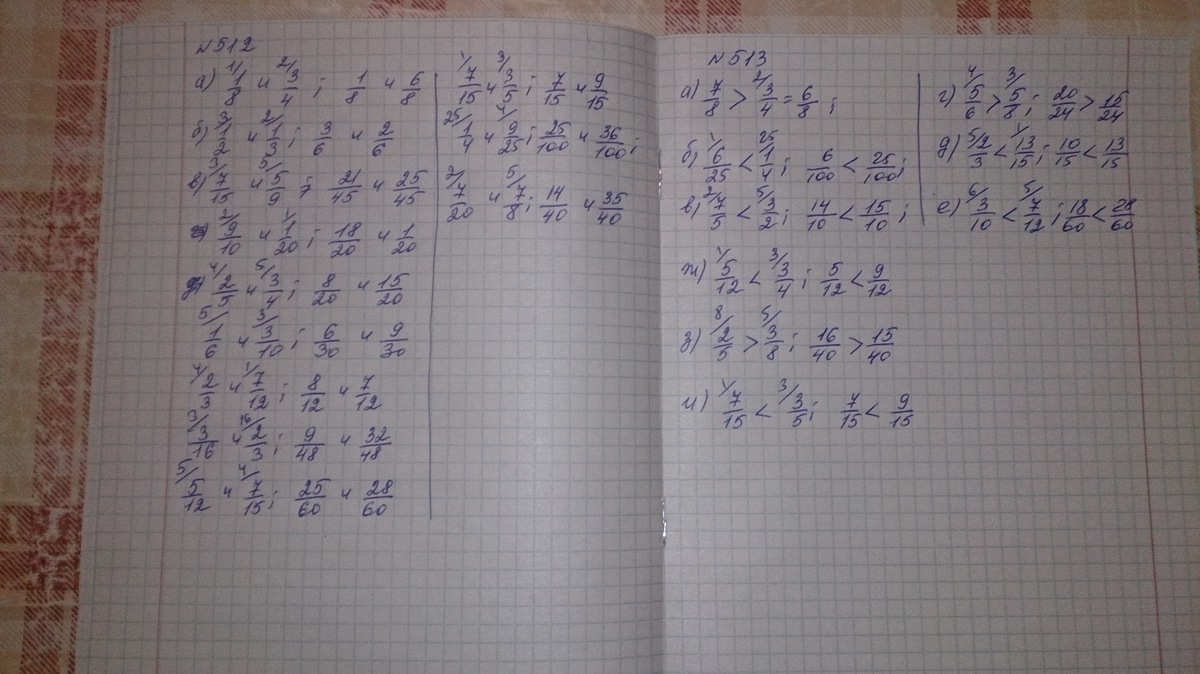 №512
а) 1/ 1/8 и 2/ 3/4; 1/8 и 6/8
б) 3/ 1/2 и 2/ 1/3; 3/6 и 2/6
в) 3/ 7/15 и 5/ 5/9; 21/45 и 25/45
2/ 9/10 и 1/ 1/20; 18/20 и 1/20
4/ 2/5 и 5/ 3/4; 8/20 и 15/20
5/ 1/6 и 3/ 3/10; 6/30 и 9/30
4/ 2/3 и 1/ 7/12; 8/12 и 7/12
3/ 3/16 и 16/ 2/3; 9/48 и 32/48
5/ 5/12 и 4/ 7/15; 25/60 и 28/60
1/ 7/15 и 3/ 3/5; 7/15 и 9/15
25/ 1/4 и 4/ 9/25; 25/100 и 36/100;
2/ 7/20 и 5/ 7/8; 14/40 и 35/40
№513
а) 7/8 > 2/ 3/4 = 6/8;
б) 1/ 6/25 < 25/ 1/4; 6/100 < 25/100;
в) 2/ 7/5 < 5/ 3/2; 14/10 < 15/10;
ж) 1/ 5/12 < 3/ 3/4; 5/12 < 9/12
з) 8/ 2/5 > 5/ 3/8; 16/40 > 15/40
и) 1/ 7/15 < 3/ 3/5; 7/15 < 9/15
г) 4/ 5/6 > 3/ 5/8; 20/24 > 15/24
д) 5/ 2/3 < 1/ 13/15; 10/15 < 13/15
е) 6/ 3/10 < 5/ 7/12; 18/60 < 28/60